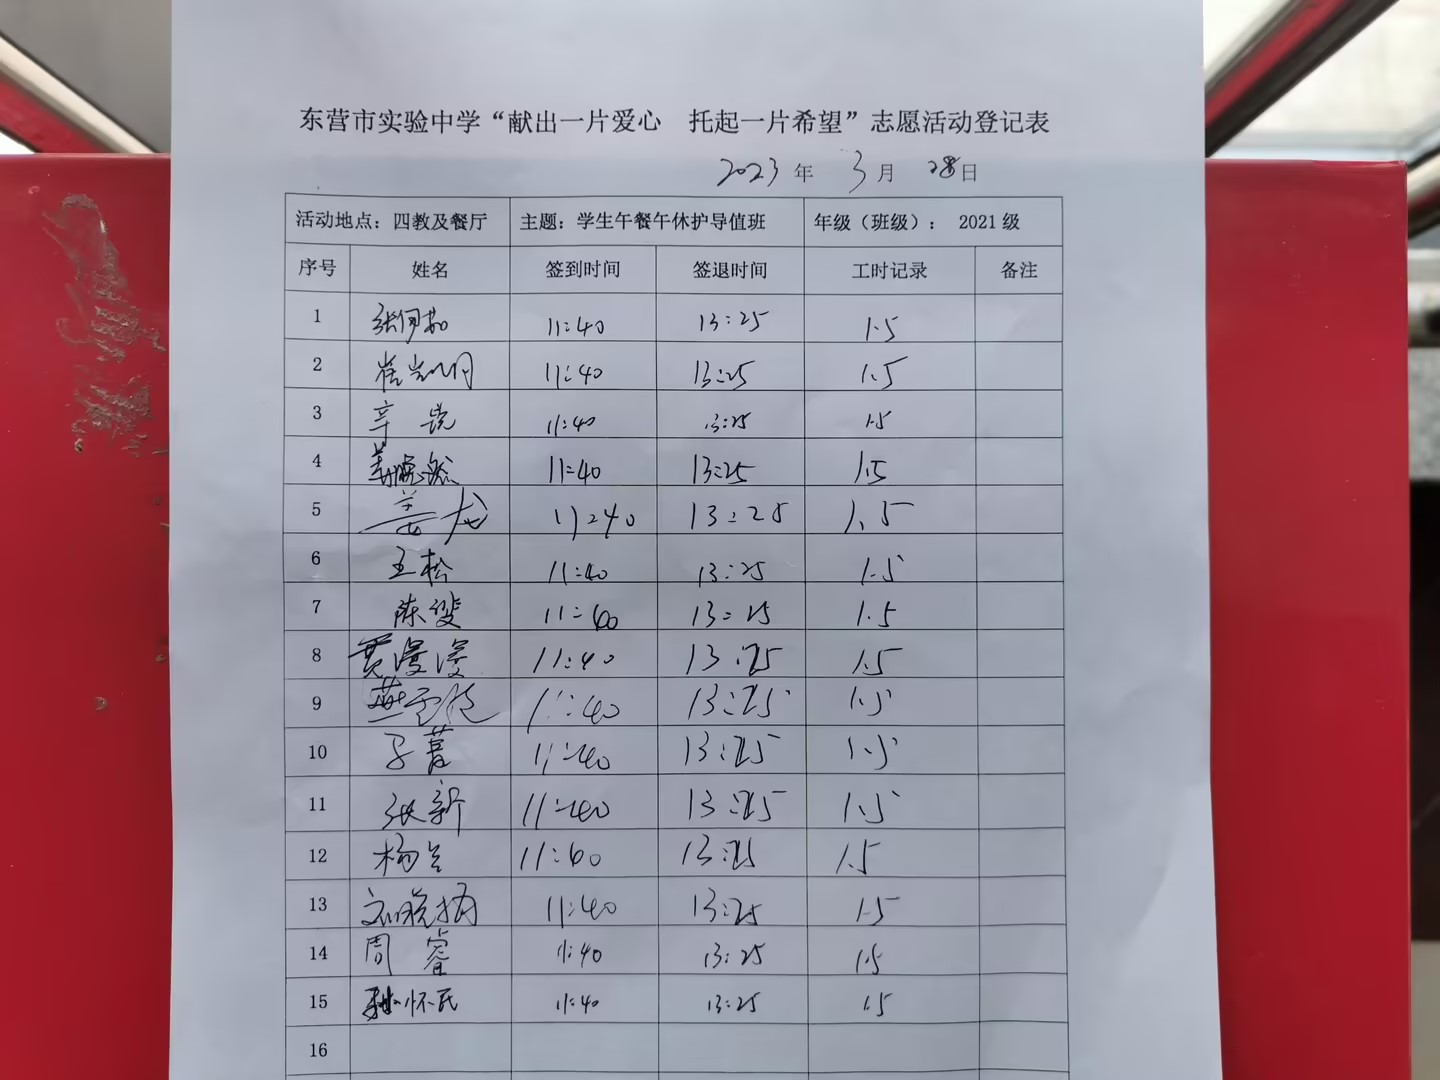 东营市实验中学“献出一片爱心 托起一片希望”志愿活动登记表
2023 年 3 月 28 日
活动地点：四教及餐厅 主题：学生午餐午休护导值班 年级（班级）： 2021 级
序号 姓名 签到时间 签退时间 工时记录 备注
1 11:40 13:25 1.5
2 11:40 13:25 1.5
3 辛 11:40 13:25 1.5
4 11:40 13:25 1.5
5 姜龙 11:40 13:25 1.5
6 王松 11:40 13:25 1.5
7 陈雙 11:40 13:25 1.5
8 贾漫漫 11:40 13:25 1.5
9 11:40 13:25 1.5
10 11:40 13:25 1.5
11 张新 11:40 13:25 1.5
12 杨 11:40 13:25 1.5
13 11:40 13:25 1.5
14 周睿 11:40 13:25 1.5
15 怀民 11:40 13:25 1.5
16